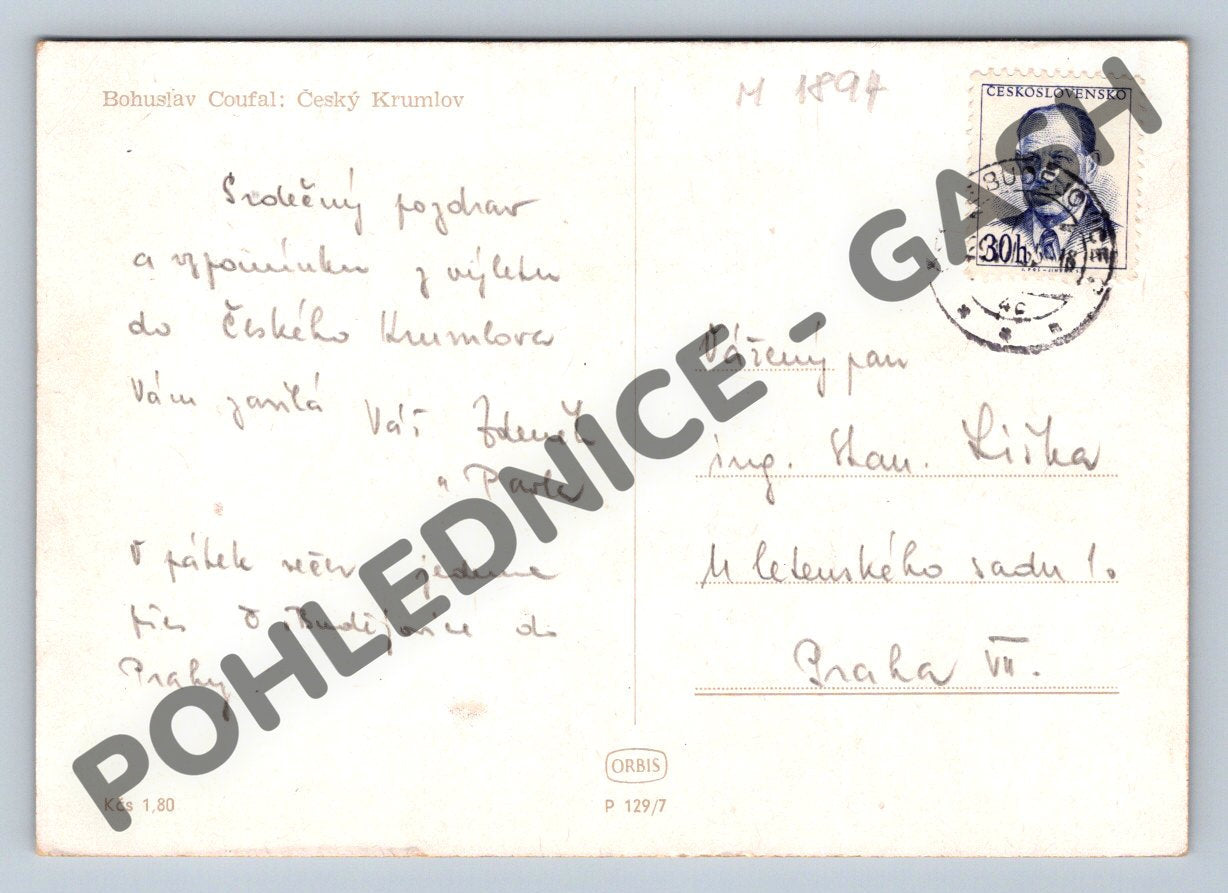 Bohuslav Coufal: Český Krumlov
M 1897
ČESKOSLOVENSKO
30h
BUDĚJOVICE
4c
Srdečný pozdrav
a vzpomínku z výletu
do Českého Krumlova
Vám zasílá Váš Zdeněk
a Pavla
V pátek večer jedeme
přes Č. Budějovice do
Prahy
Vážený pan
ing. Stan. Liška
U letenského sadu 1.
Praha VII.
ORBIS
Kčs 1,80
P 129/7
POHLEDNICE - GACH